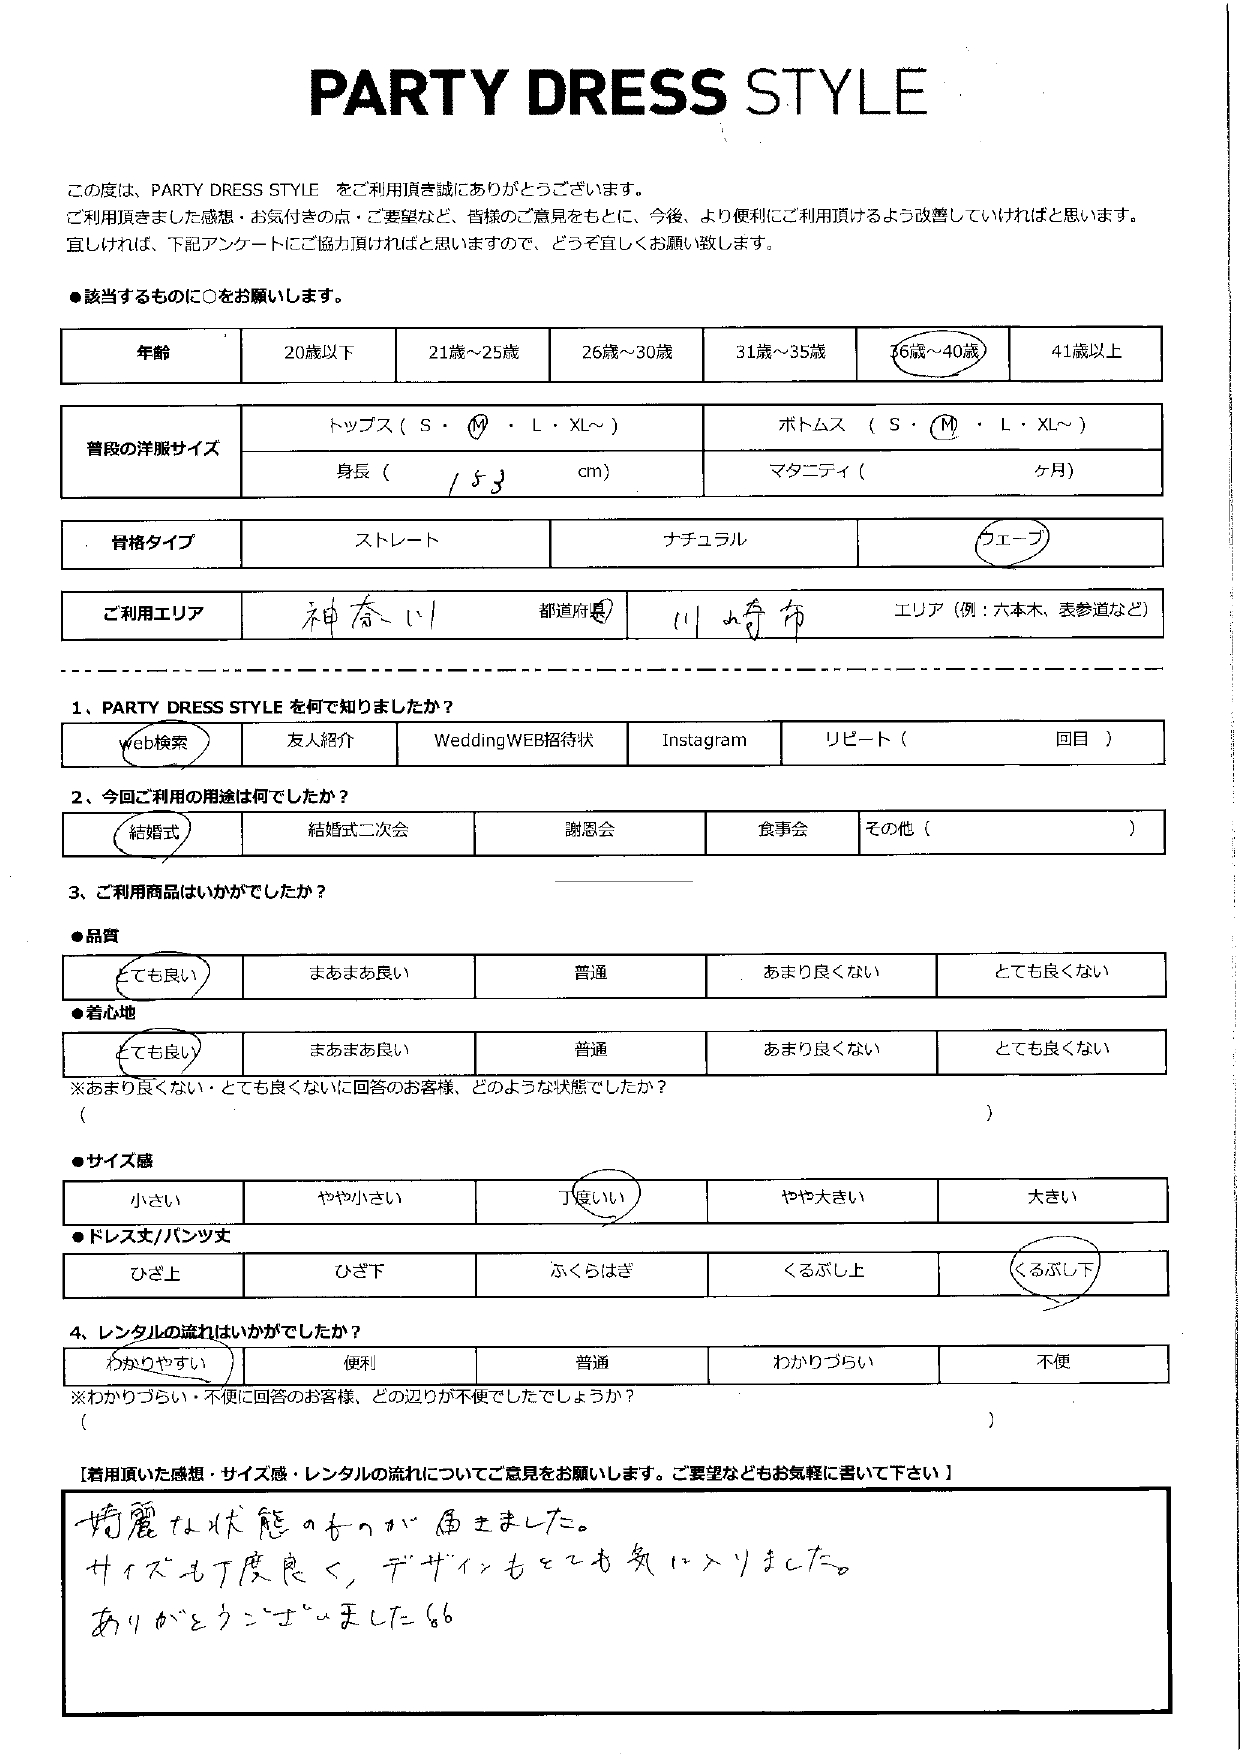 PARTY DRESS STYLE
この度は、PARTY DRESS STYLE をご利用頂き誠にありがとうございます。
ご利用頂きました感想・お気付きの点・ご要望など、皆様のご意見をもとに、今後、より便利にご利用頂けるよう改善していければと思います。
宜しければ、下記アンケートにご協力頂ければと思いますので、どうぞ宜しくお願い致します。
●該当するものに○をお願いします。
年齢 20歳以下 21歳～25歳 26歳～30歳 31歳～35歳 36歳～40歳 41歳以上
普段の洋服サイズ トップス ( S ・ M ・ L ・ XL～ ) ボトムス ( S ・ M ・ L ・ XL～ )
身長 ( 153 cm) マタニティ ( ケ月)
骨格タイプ ストレート ナチュラル ウェーブ
ご利用エリア 神奈川 都道府県 川崎市 エリア（例：六本木、表参道など）
1、PARTY DRESS STYLE を何で知りましたか？
web検索 友人紹介 WeddingWEB招待状 Instagram リピート ( 回目 )
2、今回ご利用の用途は何でしたか？
結婚式 結婚式二次会 謝恩会 食事会 その他 ( )
3、ご利用商品はいかがでしたか？
●品質
とても良い まあまあ良い 普通 あまり良くない とても良くない
●着心地
とても良い まあまあ良い 普通 あまり良くない とても良くない
※あまり良くない・とても良くないに回答のお客様、どのような状態でしたか？
( )
●サイズ感
小さい やや小さい 丁度いい やや大きい 大きい
●ドレス丈/パンツ丈
ひざ上 ひざ下 ふくらはぎ くるぶし上 くるぶし下
4、レンタルの流れはいかがでしたか？
わかりやすい 便利 普通 わかりづらい 不便
※わかりづらい・不便に回答のお客様、どの辺りが不便でしたでしょうか？
( )
【着用頂いた感想・サイズ感・レンタルの流れについてご意見をお願いします。ご要望などもお気軽に書いて下さい 】
綺麗な状態のものが届きました。
サイズも丁度良く、デザインもとても気に入りました。
ありがとうございました